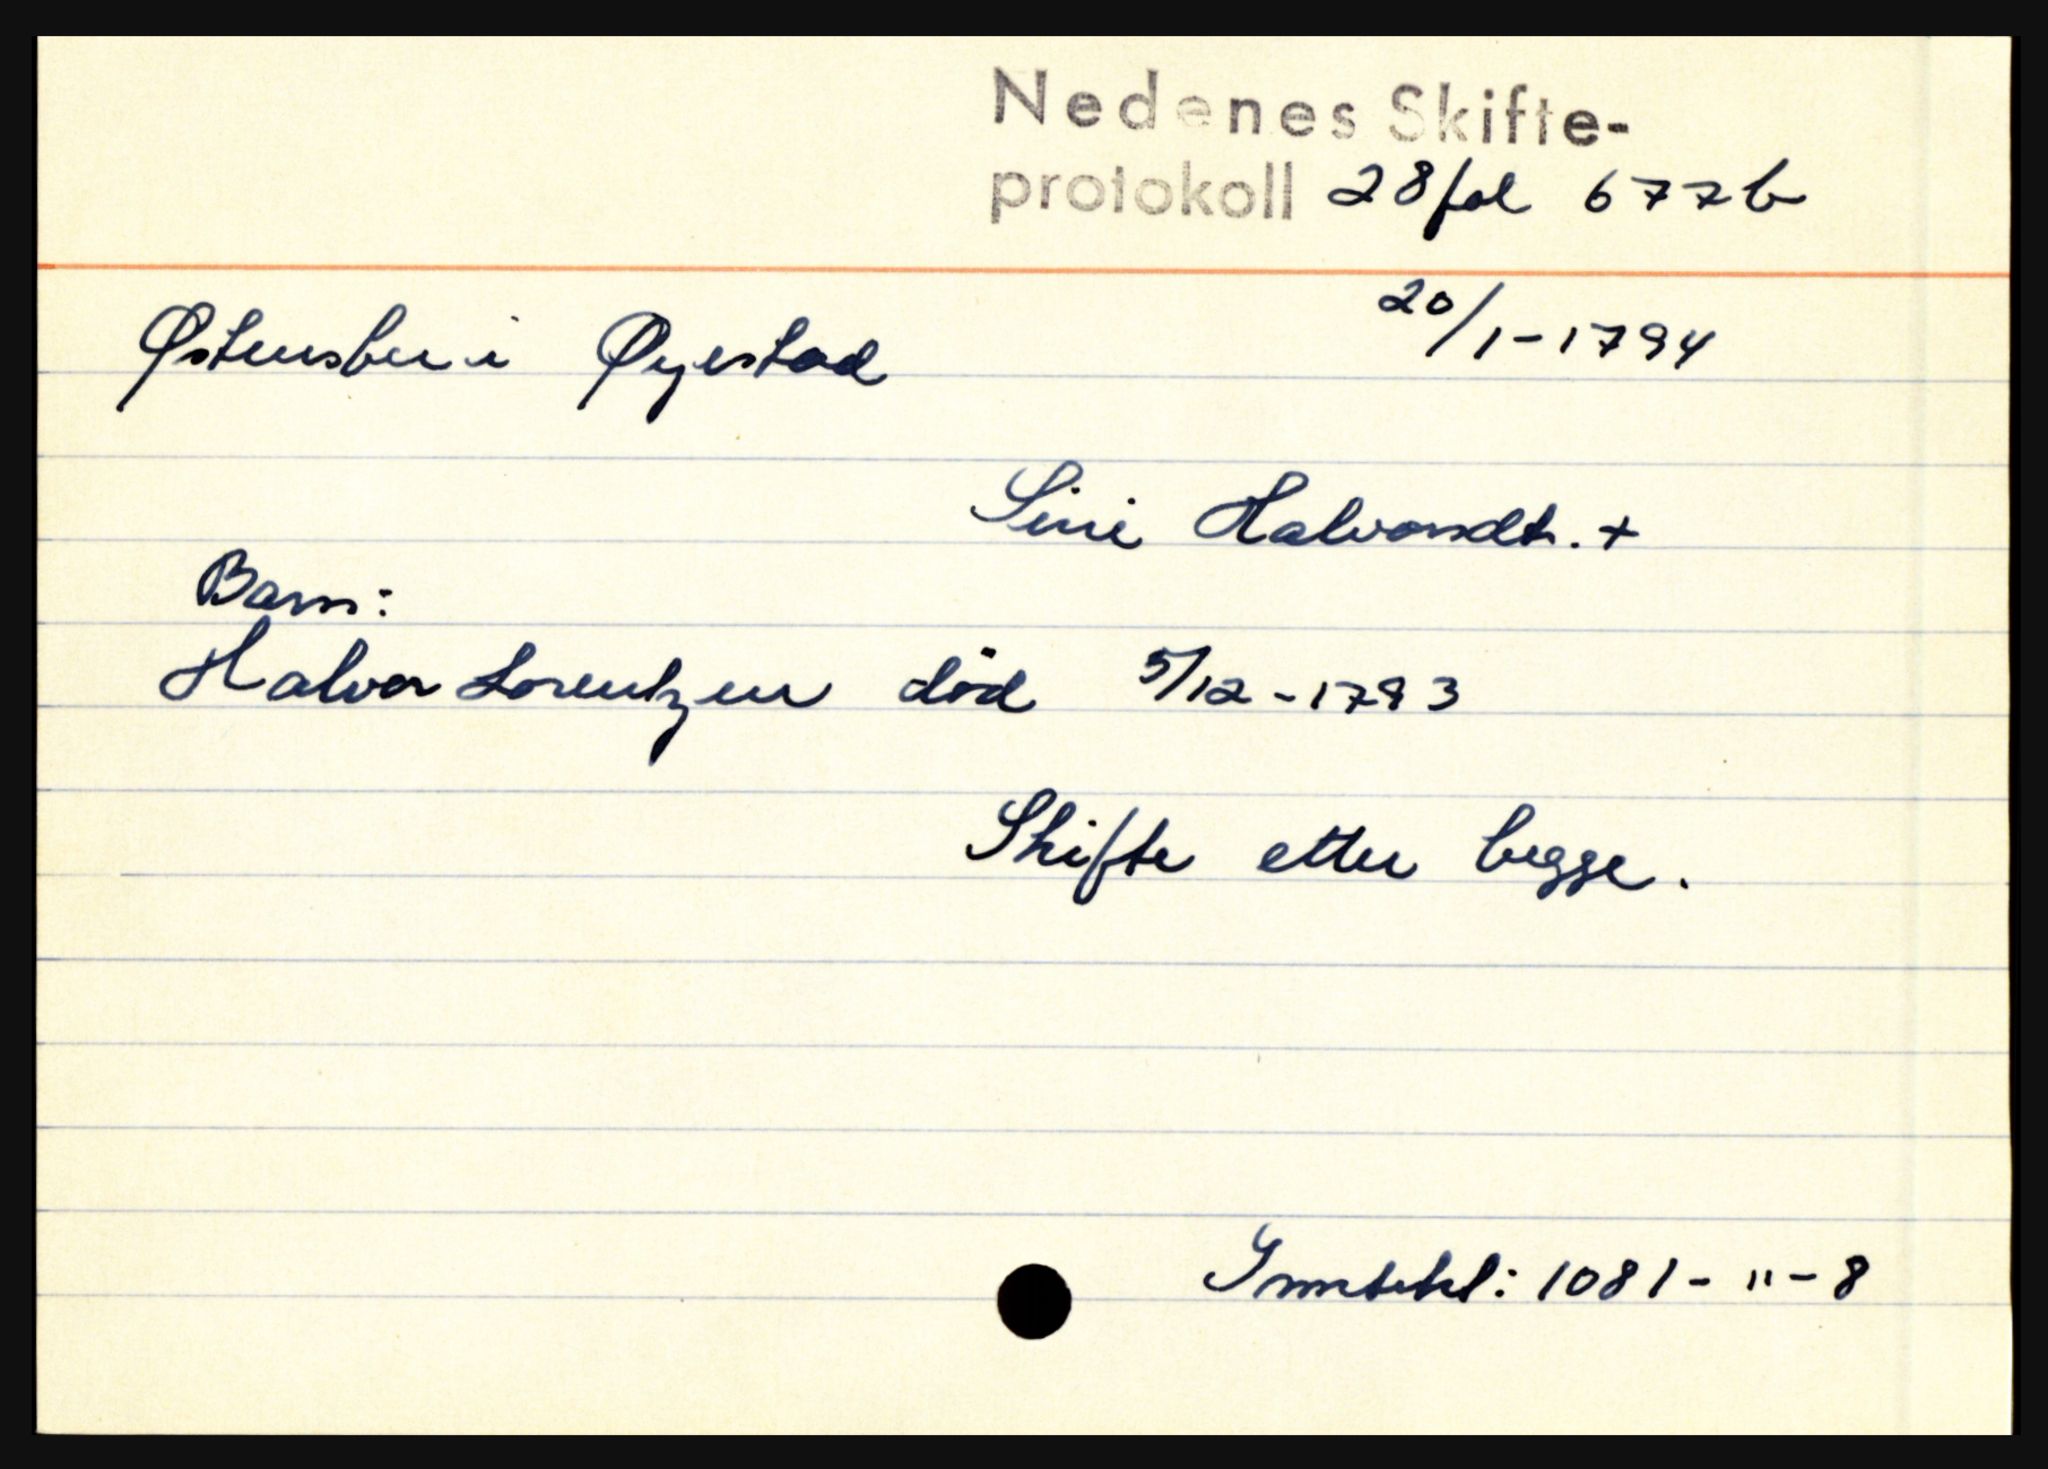 Nedenes Skifte-
protokoll 28 fol 677b
20/1-1794
Østensbu i Øyestad
Siri Halvorsdtr. +
Barn:
Halvor Lorentzen død 5/12-1793
Skifte etter begge.
1081-"-8